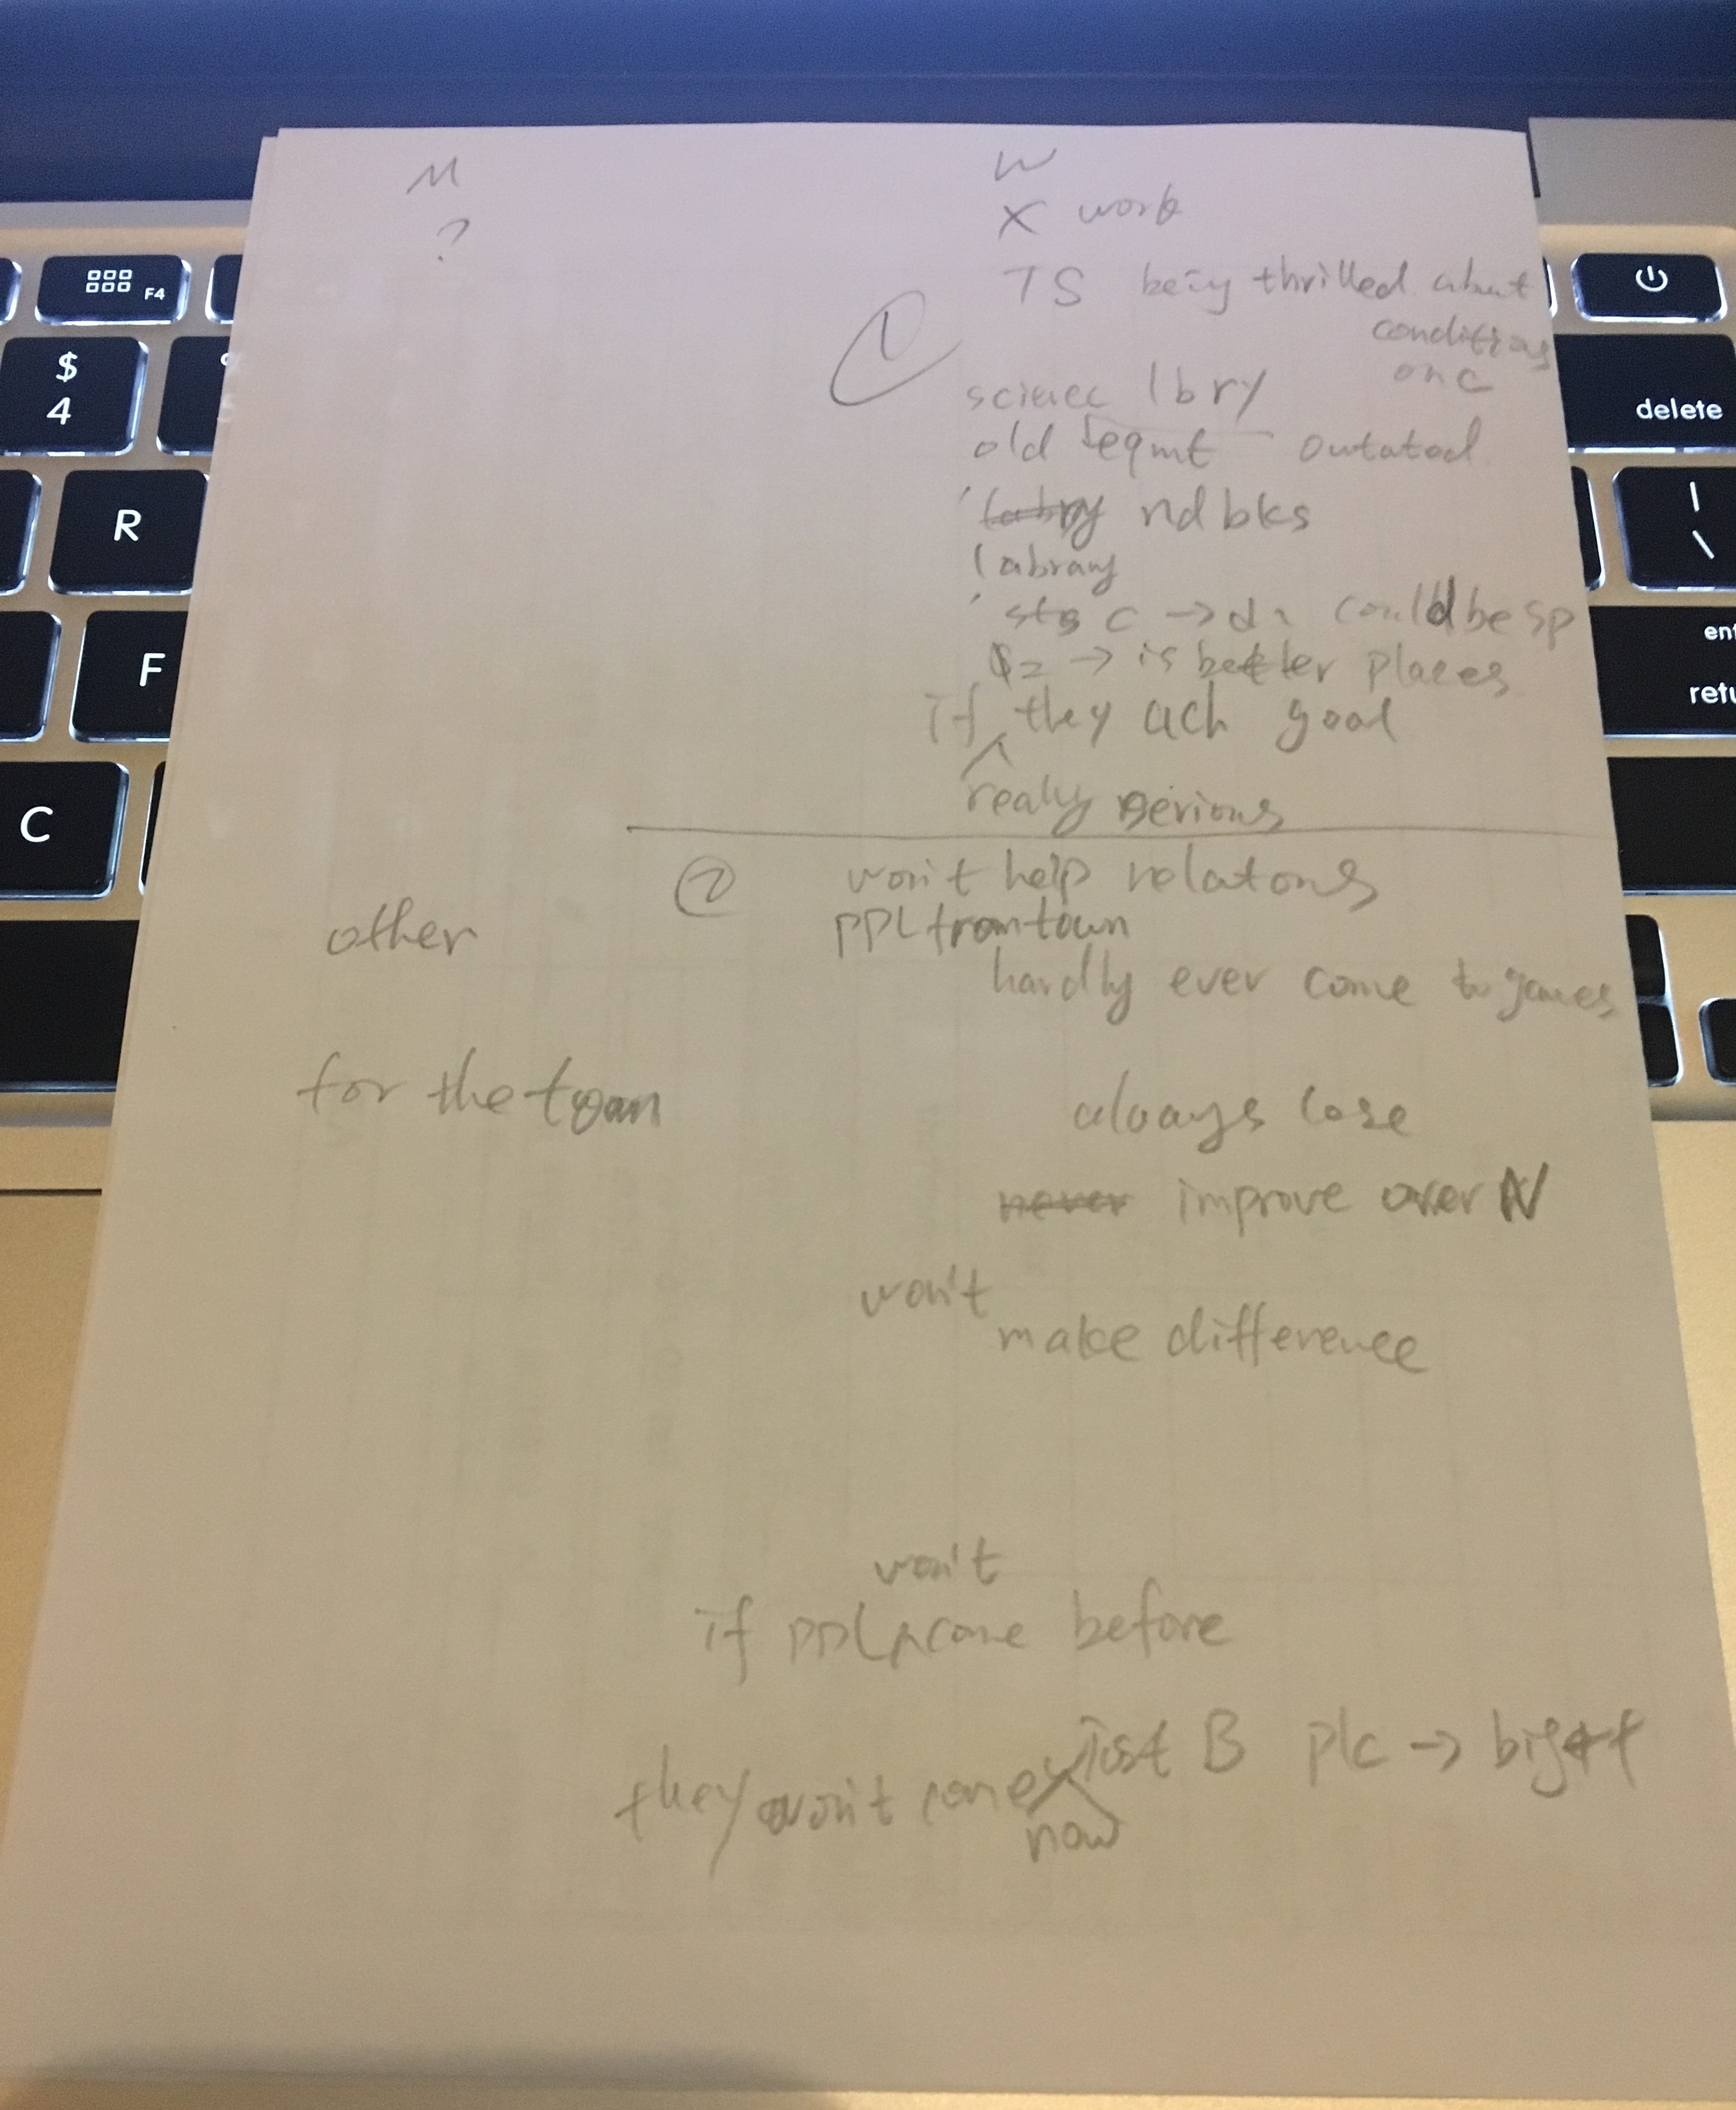 M
W
?
X work
TS being thrilled about
conditions
on c
①
science lbry
old eqmt outated
labry nd bks
labrary
sts c → could be sp
$2 → is better places
if they ach goal
really serious
②
won't help relatons
other
ppl from town
hardly ever come to games
for the town
always lose
never improve over N
won't
make difference
won't
if ppl come before
just B plc →
they won't come
now
F4
$
4
R
F
C
delete
|
\
ent
retu